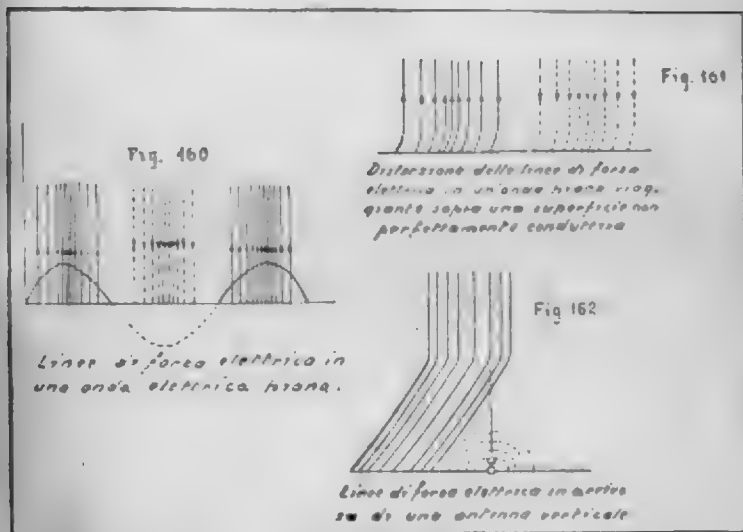 Fig. 160
Linee di forza elettrica in
una onda elettrica piana.
Fig. 161
Distorsione delle linee di forza
elettrica in un'onda piana viag.
giante sopra una superficie non
perfettamente conduttiva
Fig 162
Linee di forza elettrica in
su di una antenna verticale